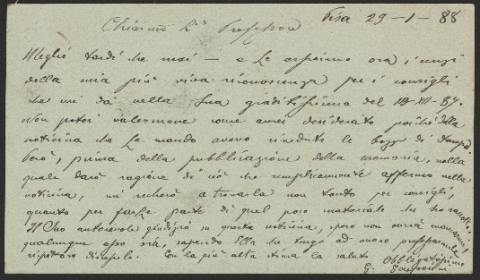 Pisa 29-1-88
Chiarmo Sr Professore
Meglio tardi che mai — e Le esprimo ora i sensi
della mia più viva riconoscenza per i consigli
che mi dà nella Sua graditissima del 18-XII-87.
Non potei valermene come amei desiderato poichè della
noticina che Le mando avevo rivedute le bozze di stampa
Però, prima della pubblicazione della memoria, nella
quale darò ragione di ciò che semplicemente affermo nella
noticina, mi recherò a trovarla non tanto per consigli,
quanto per farle parte di quel poco materiale che ho
Il Suo autorevole giudizio su questa noticina, spero non vorrà mancarmi,
qualunque esso sia, sapendo Ella che tengo ad essere
discepolo. Con la più alta stima la saluto
Obbligatissimo
G.